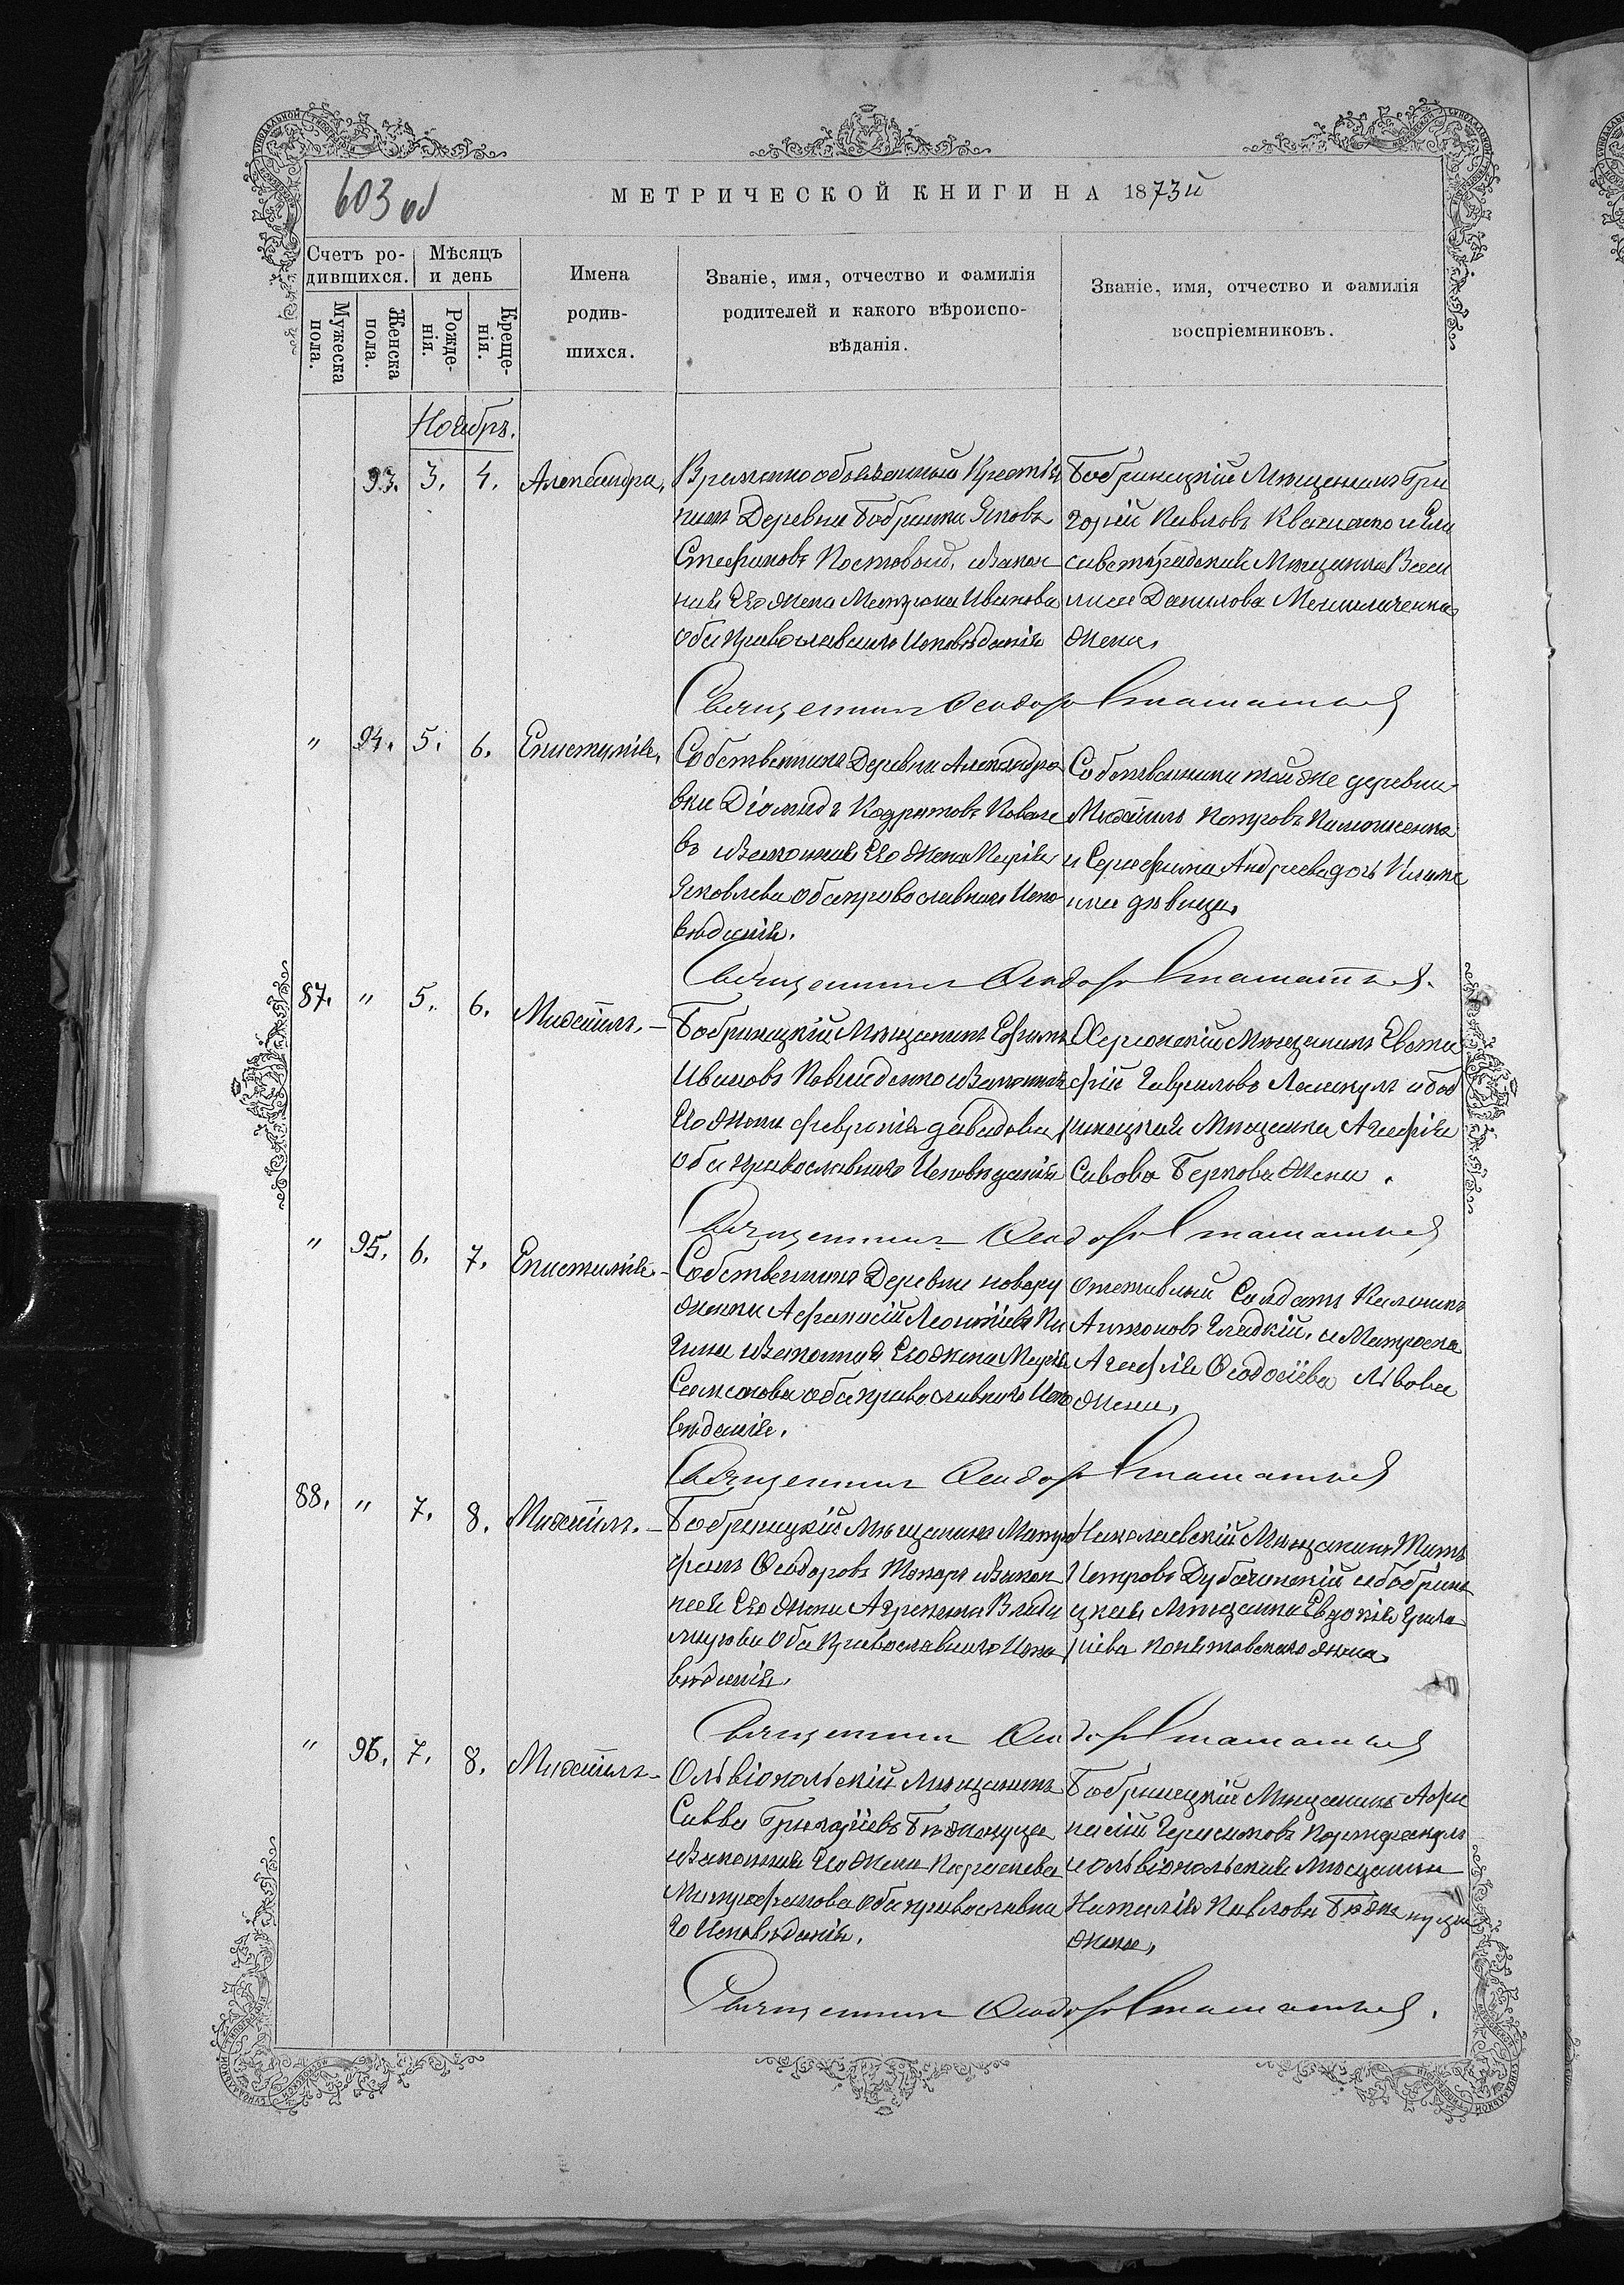 603 об
МЕТРИЧЕСКОЙ КНИГИ НА 1873й
Счетъ ро-
дившихся.
Мѣсяцъ
и день
Мужеска
пола.
Женска
пола.
Рожде-
нія.
Креще-
нія.
Имена
родив-
шихся.
Званіе, имя, отчество и фамилія
родителей и какого вѣроиспо-
вѣданія.
Званіе, имя, отчество и фамилія
воспріемниковъ.
Ноябрь.
93. 3. 4. Александра,
Временно обязанный Крестья
нинъ Деревни Бобринки Яковъ
Стефановъ Постовый, и Закон
ная Его Жена Матрона Иванова
оба православнаго Исповѣданія
Бобринецкій Мѣщанинъ Гри
горій Павловъ Квашенко и Ели
саветградская Мѣщанка Васи
лиса Данилова
жена.
Священникъ Ѳеодоръ
" 94. 5. 6. Епистимія,
Собственникъ Деревни Александро
вки Діомидъ Кодратовъ Ковале
въ и Законная Его Жена Марія
Яковлева оба православнаго Испо
вѣданія.
Собственники той же деревни
Михаилъ Петровъ
и Серафима Андреева дочь
дѣвица.
Священникъ Ѳеодоръ
87. " 5. 6. Михаилъ. –
Бобринецкій Мѣщанинъ Ефимъ
Ивановъ и Законная
Его Жена Февронія Давидова
оба православнаго Исповѣданія
Херсонскій Мѣщанинъ Евста
фій Гавриловъ и Боб
ринецкая Мѣщанка Агафія
Савова Беркова Жена.
Священникъ Ѳеодоръ
" 95. 6. 7. Епистимія. –
Собственникъ Деревни
Афанасій Леонтіевъ
и Законная Его жена Марія
Самсонова оба православнаго Испо
вѣданія.
Отставный Солдатъ
Антоновъ Гладкій, и Матроска
Агафія Ѳеодосіева Львова
жена,
Священникъ Ѳеодоръ
88. " 7. 8. Михаилъ. –
Бобринецкій Мѣщанинъ Митро
фанъ Ѳеодоровъ Токарь и Закон
ная Его Жена Агрепина Влади
мирова Оба Православнаго Испо
вѣданія.
Николаевскій Мѣщанинъ Титъ
Петровъ и Бобрине
цкая Мѣщанка Евдокія Григо
ріева жена.
Священникъ Ѳеодоръ
" 96. 7. 8. Михаилъ –
Ольвіопольскій Мѣщанинъ
Савва Григоріевъ
и Законная Его Жена Параскева
Митрофанова оба православна
го Исповѣданія.
Бобринецкій Мѣщанинъ Афа
насій Герасимовъ
и ольвіопольская Мѣщанка
Наталія Павлова
жена,
Священникъ Ѳеодоръ